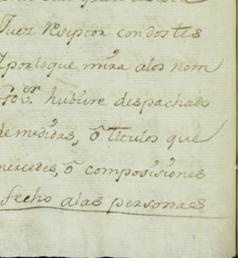 Juez reseptor con dos tes
y por lo que mira a los nom
hubiere despachado
de medidas, ô titulos que
mercedes, ô composisiones
fecho a las personaes